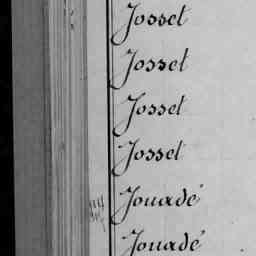 Josset
Josset
Josset
Josset
Jouadé
Jouadé